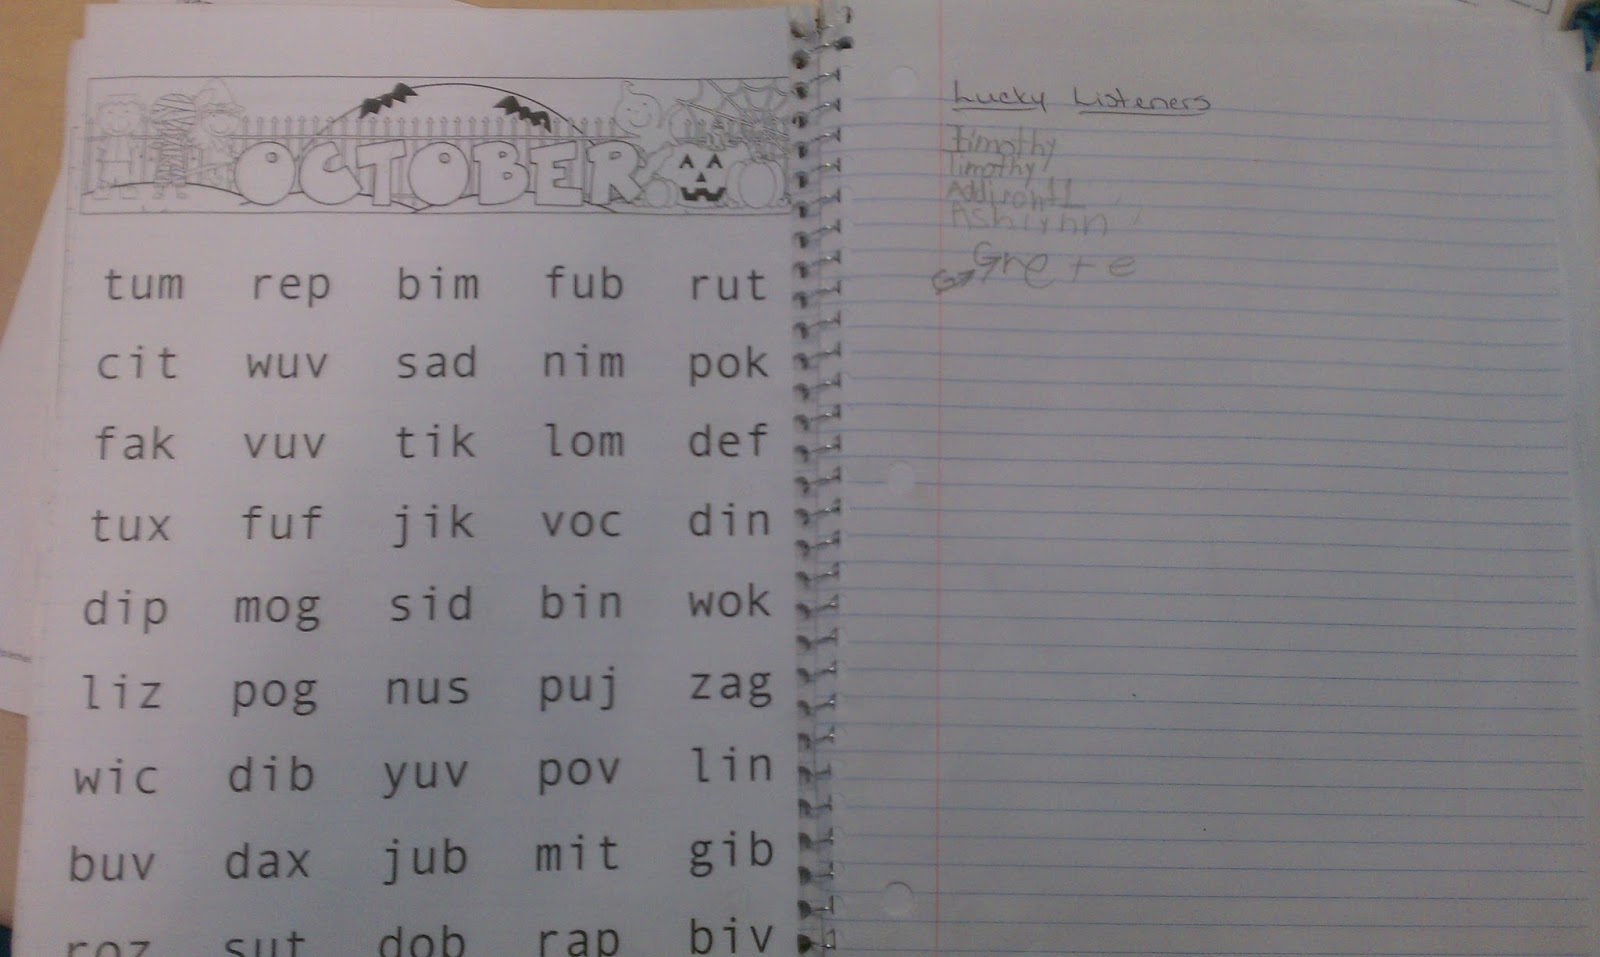 OCTOBER
tum rep bim fub rut
cit wuv sad nim pok
fak vuv tik lom def
tux fuf jik voc din
dip mog sid bin wok
liz pog nus puj zag
wic dib yuv pov lin
buv dax jub mit gib
roz sut dob rap biv
Lucky Listeners
timothy
Timothy
Ashlynn
Grete